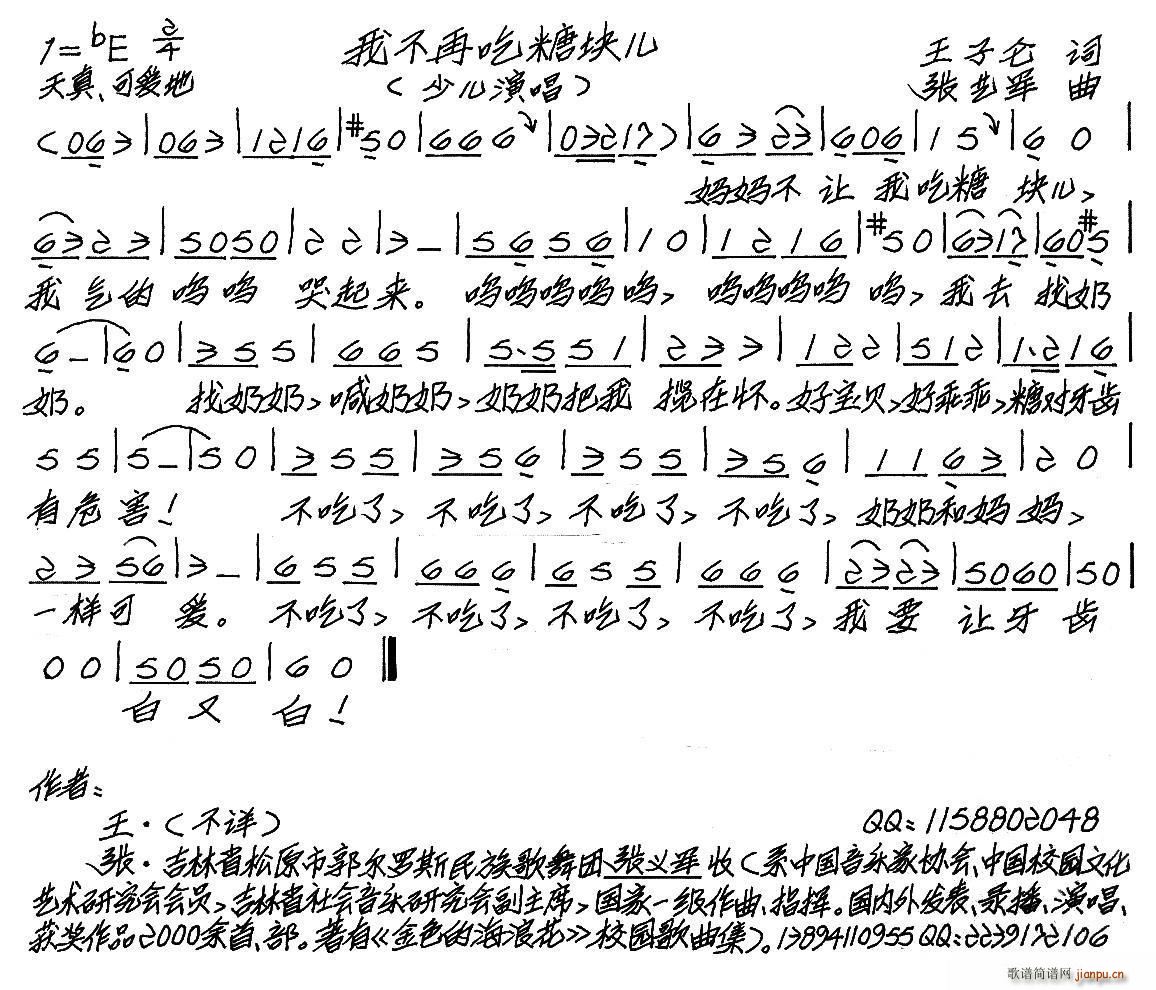 1=ᵇE 2/4 我不再吃糖块儿 王子仑 词
天真、可爱地 (少儿演唱) 张艺军 曲
(063|063|1216|#50|666|03217)|63 23|606|15|60|
妈妈不 让 我吃糖 块儿,
6323|5050|22|3-|5656|10|1216|#50|6317|60#5|
我 气的 呜呜 哭起来。 呜呜呜呜呜, 呜呜呜呜 呜, 我去 找奶
6-|60|355|665|5·551|233|122|512|1·216|
奶。 找奶奶,喊奶奶,奶奶把我 揽在怀。好宝贝,好乖乖,糖对牙齿
55|5-|50|355|356|355|356|1163|20|
有危 害! 不吃了, 不吃了, 不吃了, 不吃了, 奶奶和妈 妈,
2356|3-|655|666|655|666|2323|5060|50|
一样可 爱。 不吃了, 不吃了, 不吃了, 不吃了, 我 要 让 牙 齿
00|5050|60‖
白 又 白!
作者:
王·(不详) QQ:1158802048
张·吉林省松原市郭尔罗斯民族歌舞团 张义军 收(系中国音乐家协会、中国校园文化
艺术研究会会员,吉林省社会音乐研究会副主席,国家一级作曲、指挥。国内外发表、录播、演唱、
获奖作品2000余首、部。著有《金色的海浪花》校园歌曲集)。13894110955 QQ:2239172106
歌谱简谱网 jianpu.cn